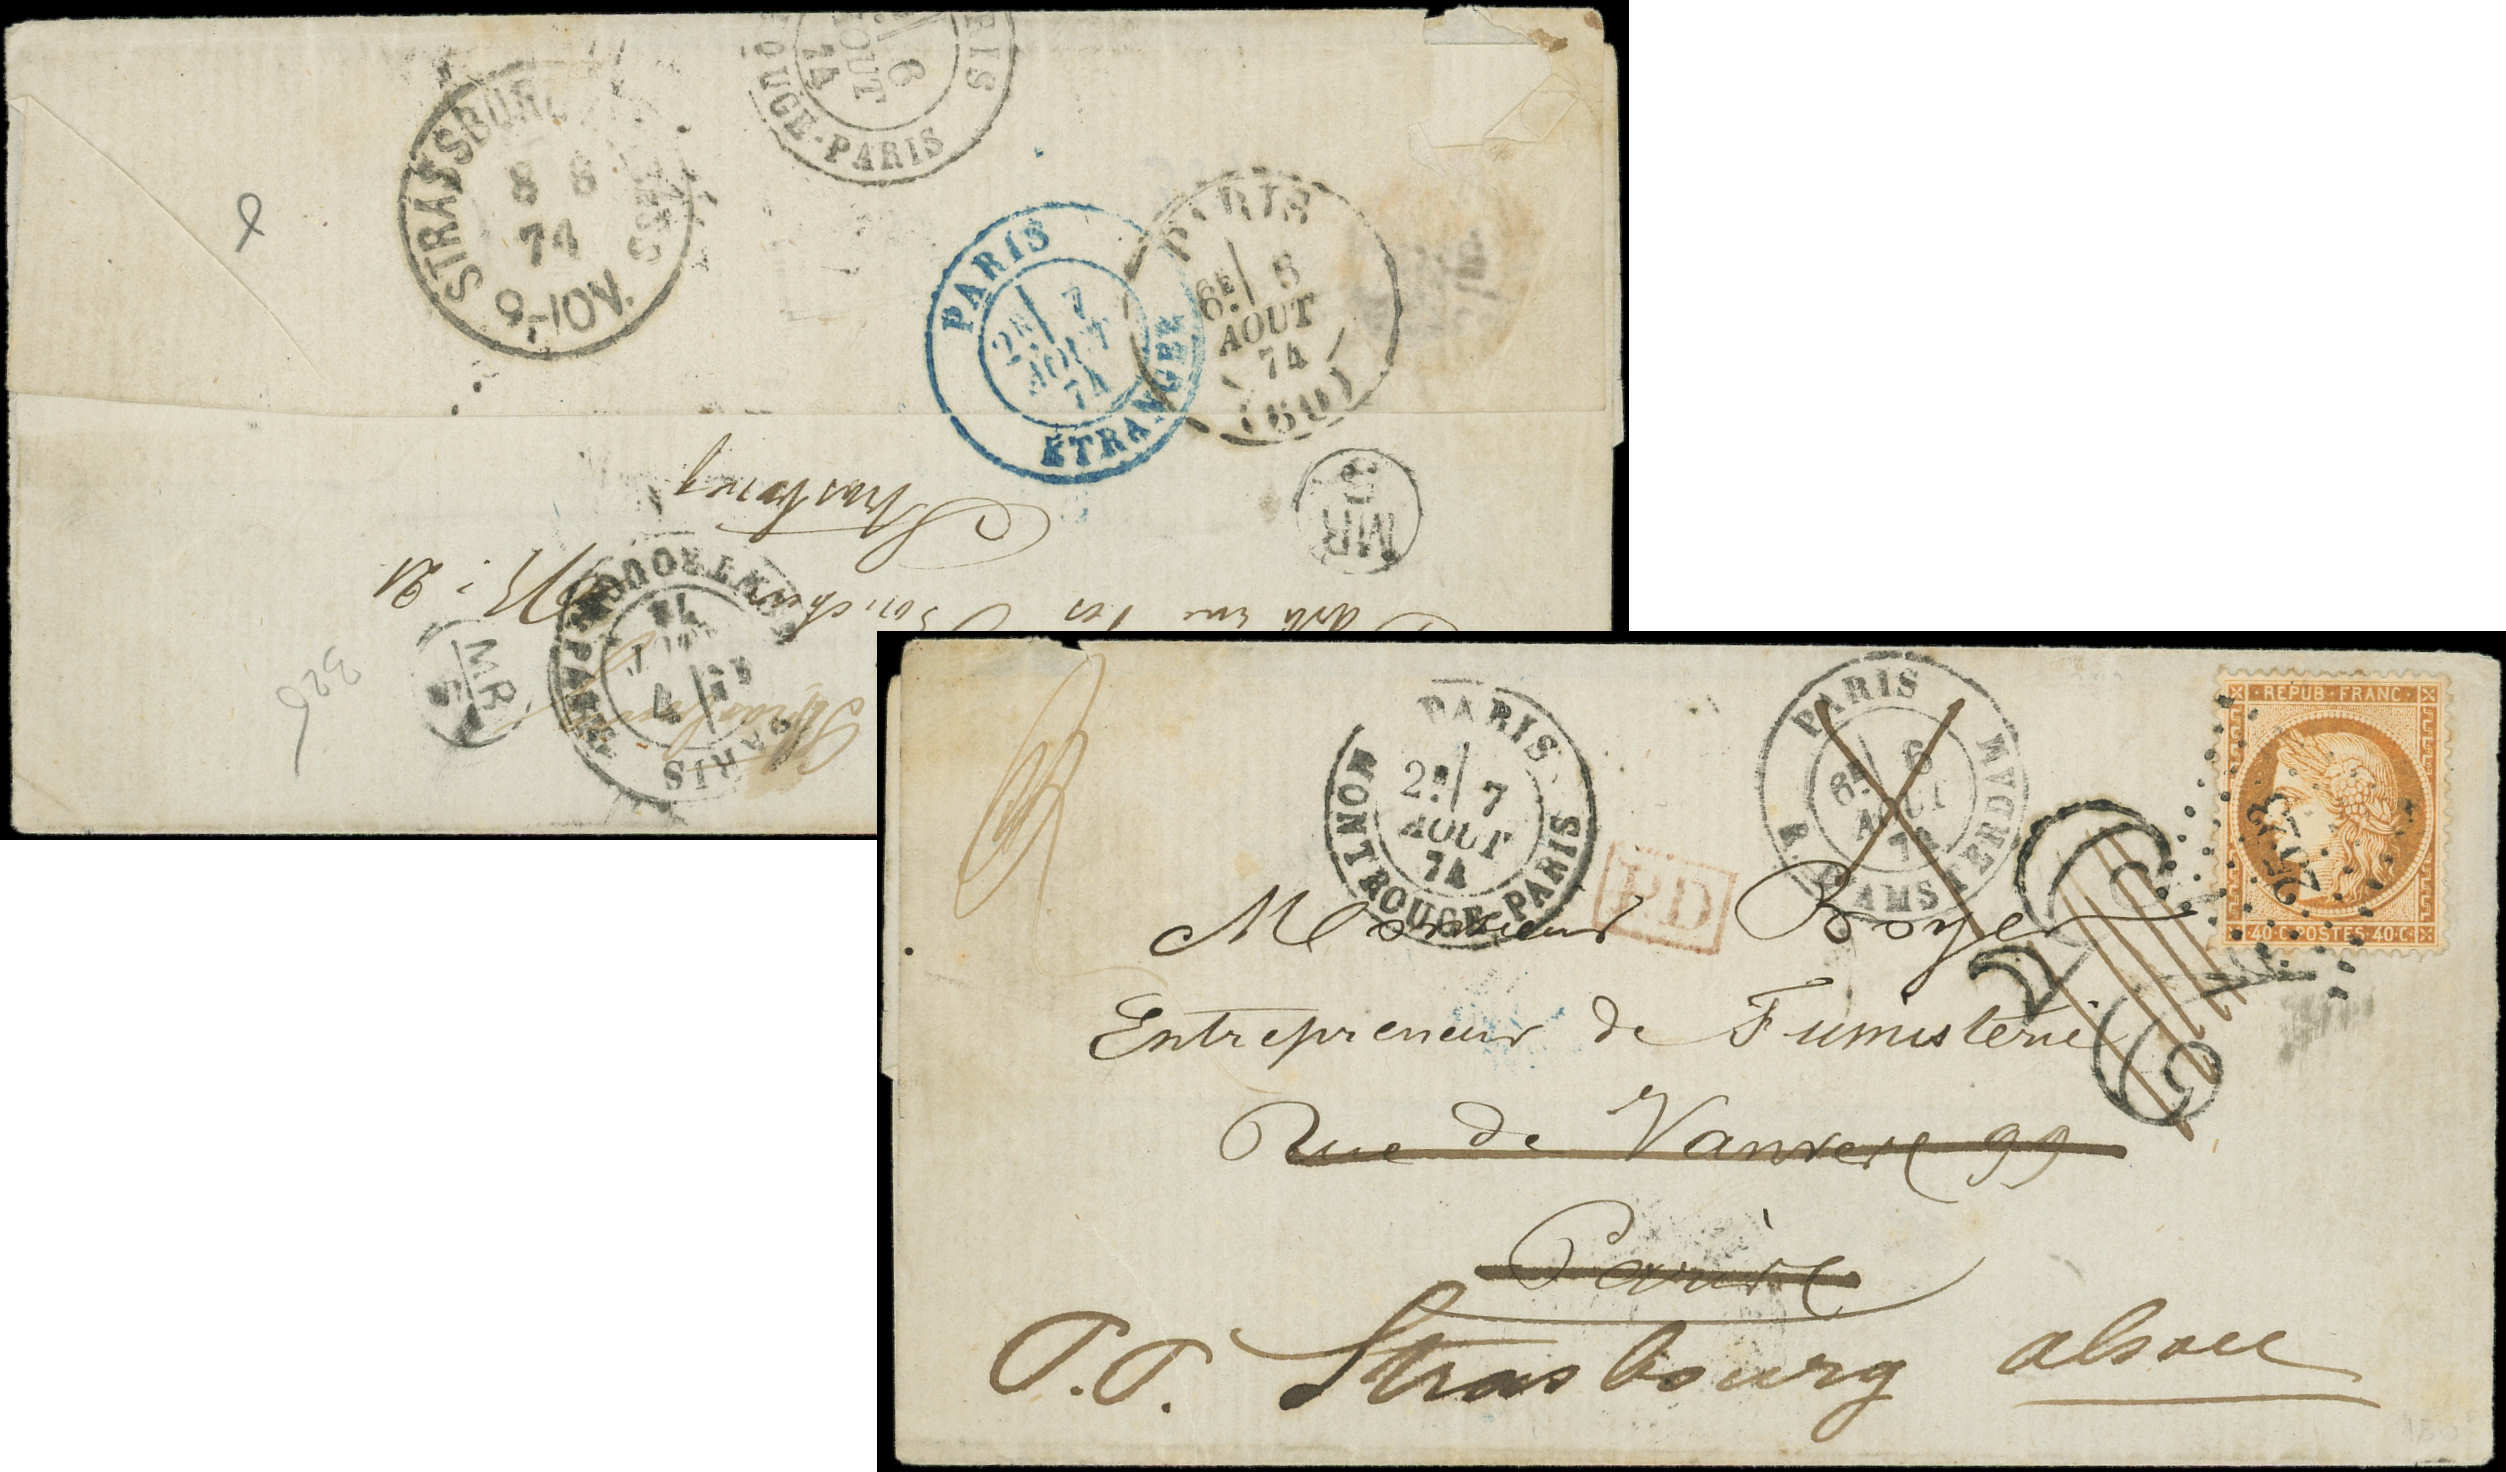 STRASSBURG
8 8
74
9-10V.
6
AOUT
74
ROUGE-PARIS
PARIS
2E 7
AOUT
74
ETRANGER
PARIS
6E 8
AOUT
74
(60)
Strasbourg
N: 21
MR
MR
PARIS
326
PARIS
2E 7
AOUT
74
MONTROUGE-PARIS
PARIS
6E 6
AOUT
74
R. D'AMSTERDAM
P.D
REPUB·FRANC·
2523
40·C·POSTES·40·C·
25
Monsieur Boyer
Entrepreneur de Fumisterie
Rue de Vanves 99
Paris
P.P. Strasbourg alsace